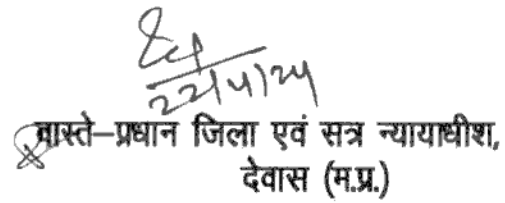 22/4/24
वास्ते–प्रधान जिला एवं सत्र न्यायाधीश,
देवास (म.प्र.)